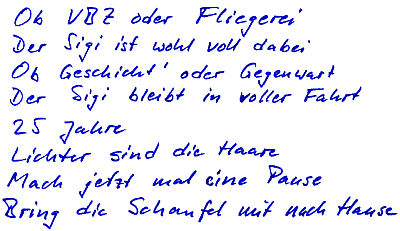 Ob VBZ oder Fliegerei
Der Sigi ist wohl voll dabei
Ob Geschicht' oder Gegenwart
Der Sigi bleibt in voller Fahrt
25 Jahre
Lichter sind die Haare
Mach jetzt mal eine Pause
Bring die Schaufel mit nach Hause